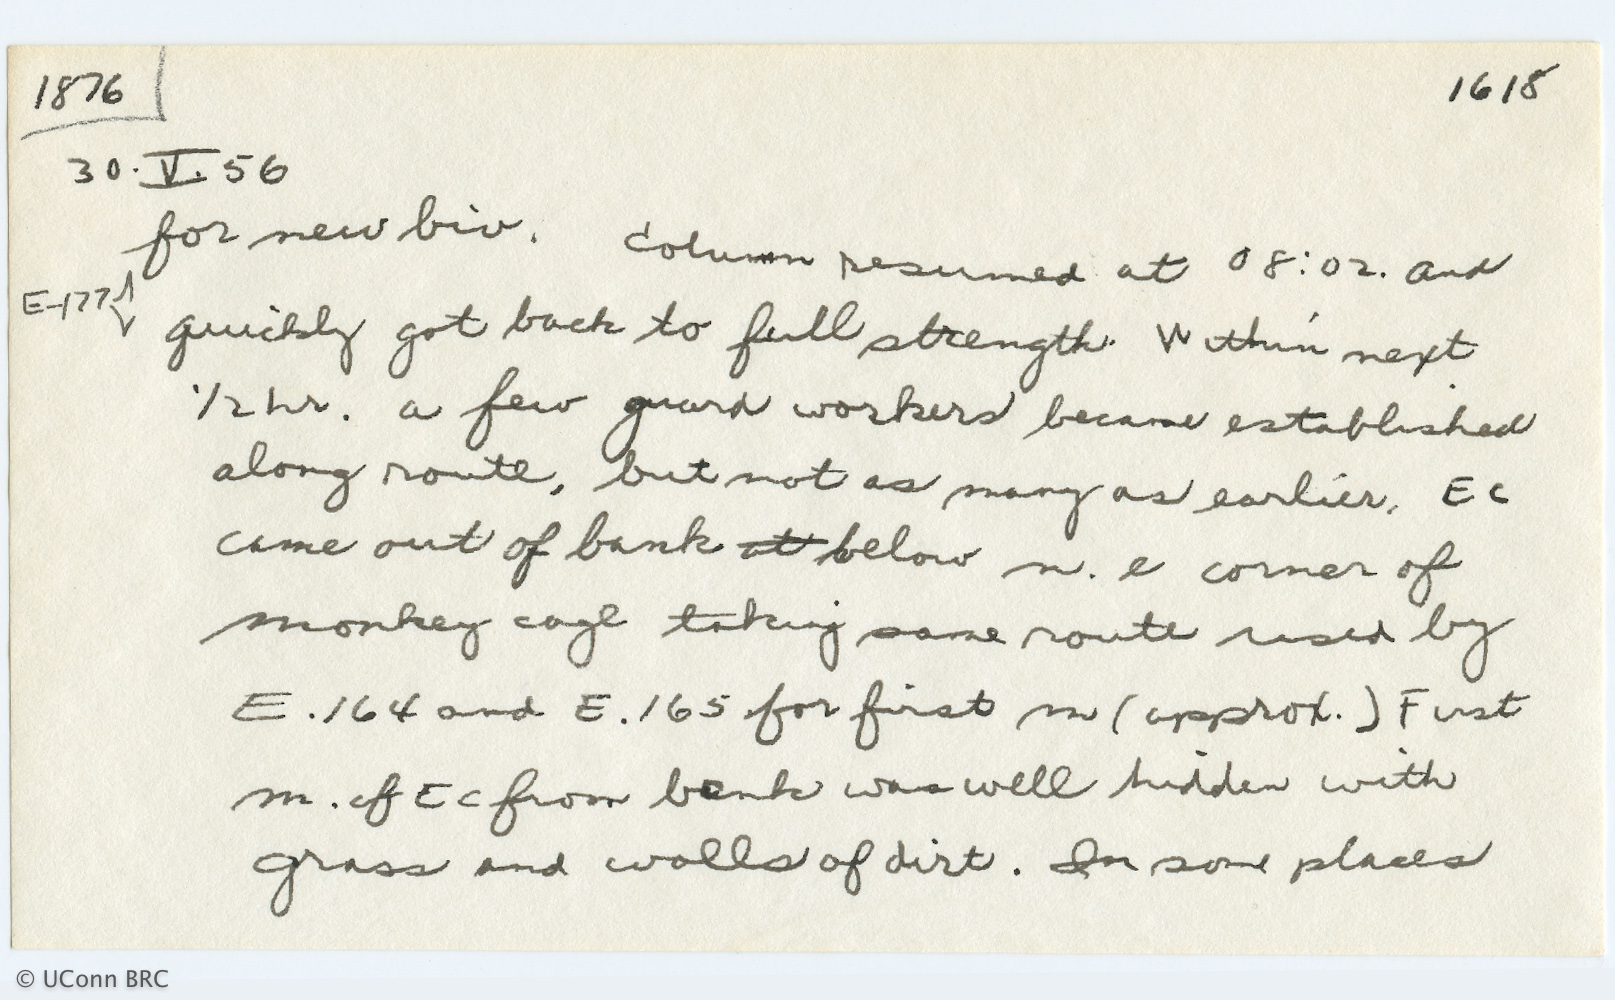 1876 1618
30.V.56
for new biv. Column resumed at 08:02. and
E-177
quickly got back to full strength. Within next
1/2 hr. a few guard workers became established
along route, but not as many as earlier. Ec
came out of bank at below n. e corner of
monkey cage taking same route used by
E.164 and E.165 for first m (approx.) First
m. of Ec from bank was well hidden with
grass and walls of dirt. In some places
© UConn BRC